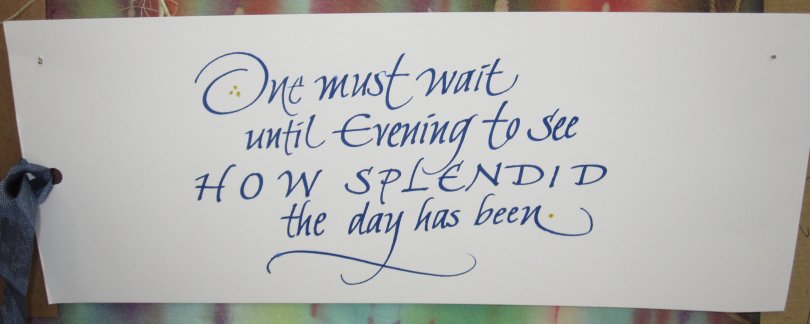 One must wait
until Evening to see
HOW SPLENDID
the day has been.